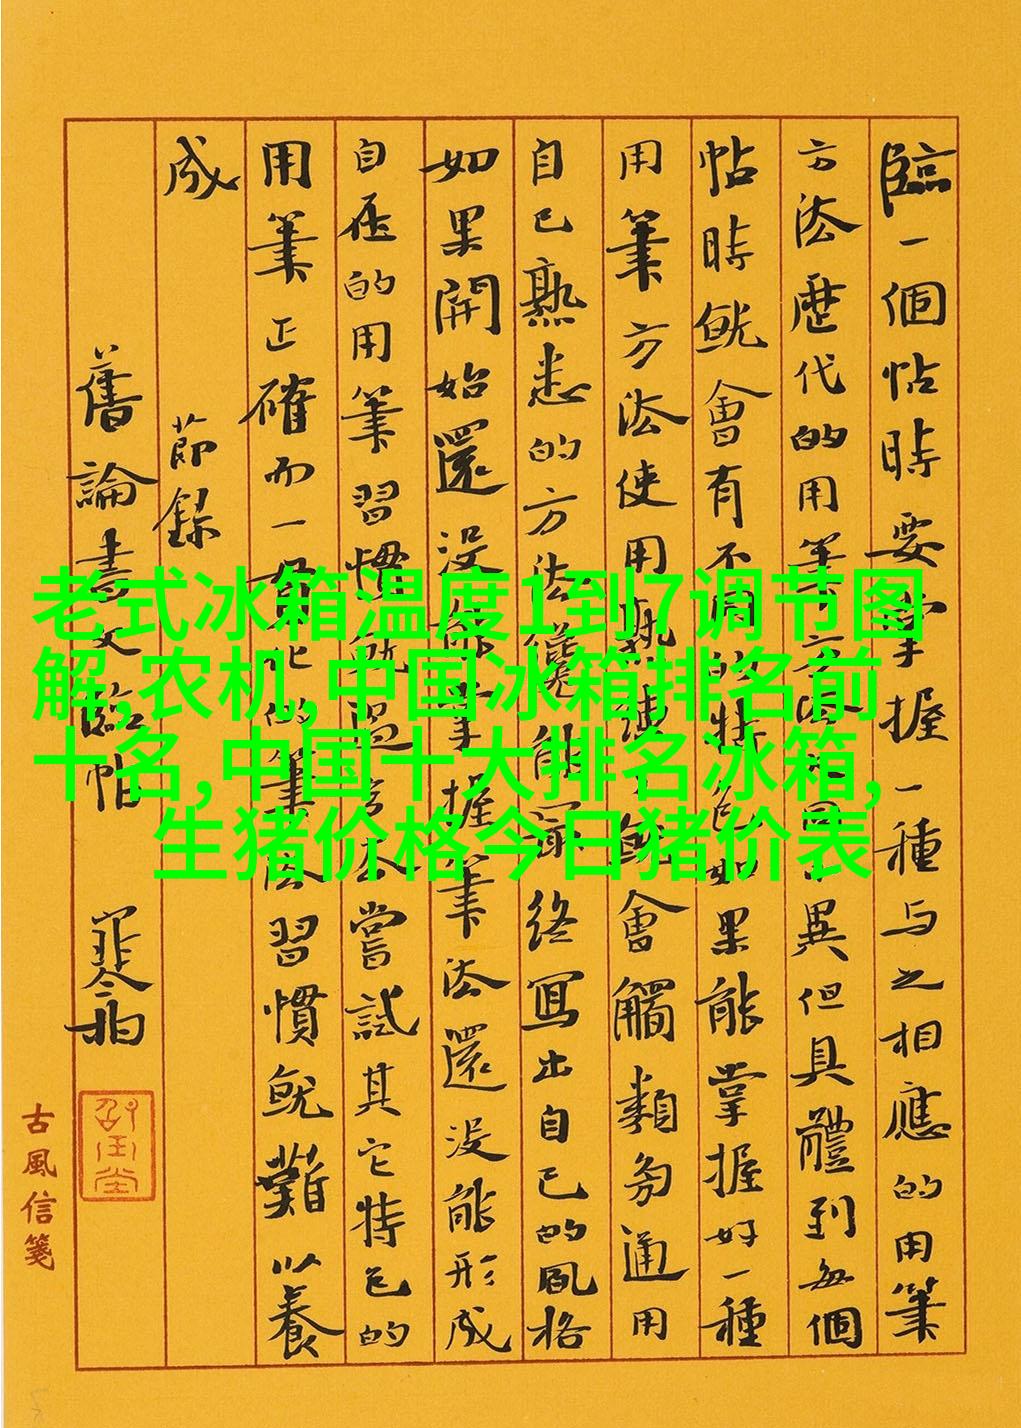 臨一個帖時要掌握一種与之相應的用筆
方法歷代的用筆方法異但具體到每個
帖時就會有不同的特色如果能掌握好一種
用筆方法使用熟練就會觸類旁通用
自己熟悉的方法纔能最終寫出自己的風格
如果開始還沒握筆法還沒能形成
自在的用筆習慣就過嘗試其它特色的
用筆正確而一的筆法習慣就難以養
成 節錄
舊論書文臨帖
古風信箋
老式冰箱温度1到7调节图
解,农机,中国冰箱排名前
十名,中国十大排名冰箱,
生猪价格今日猪价表